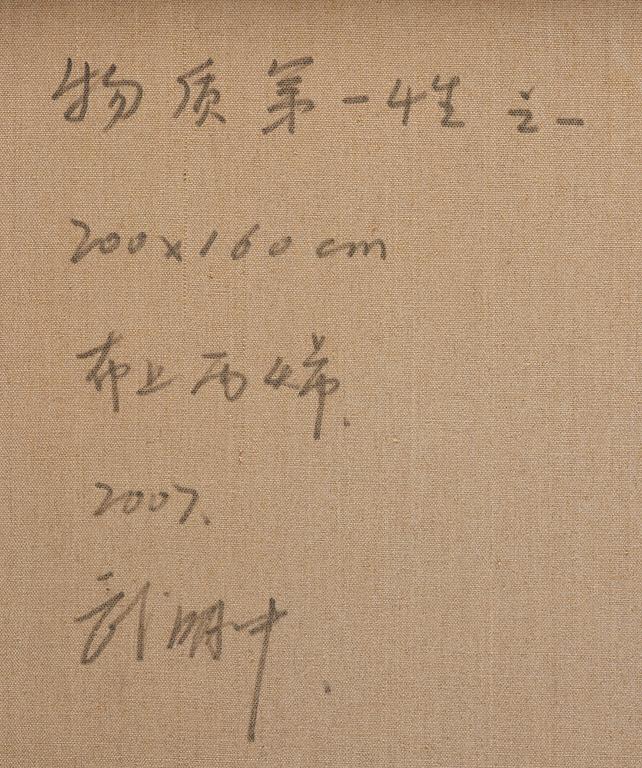 物质第一性之一
200x160cm
布上丙烯.
2007.
武明中.